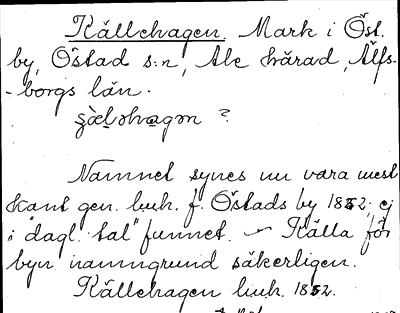 Källehagen. Mark i Öst.
by, Östad s:n, Ale härad, Älfs-
-borgs län.
ʂæ̀l̥ɘhvagɘn ?
Namnet synes nu vara mest
känt gen. lmh. f. Östads by 1852; ej
i "dagl. tal" funnet. – Källa för
byn namngrund säkerligen.
Källehagen lmh. 1852.